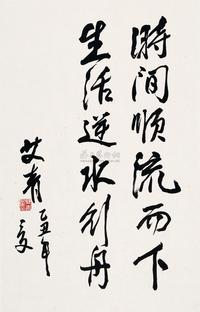 時间顺流而下
生活逆水行舟
艾青
乙丑年